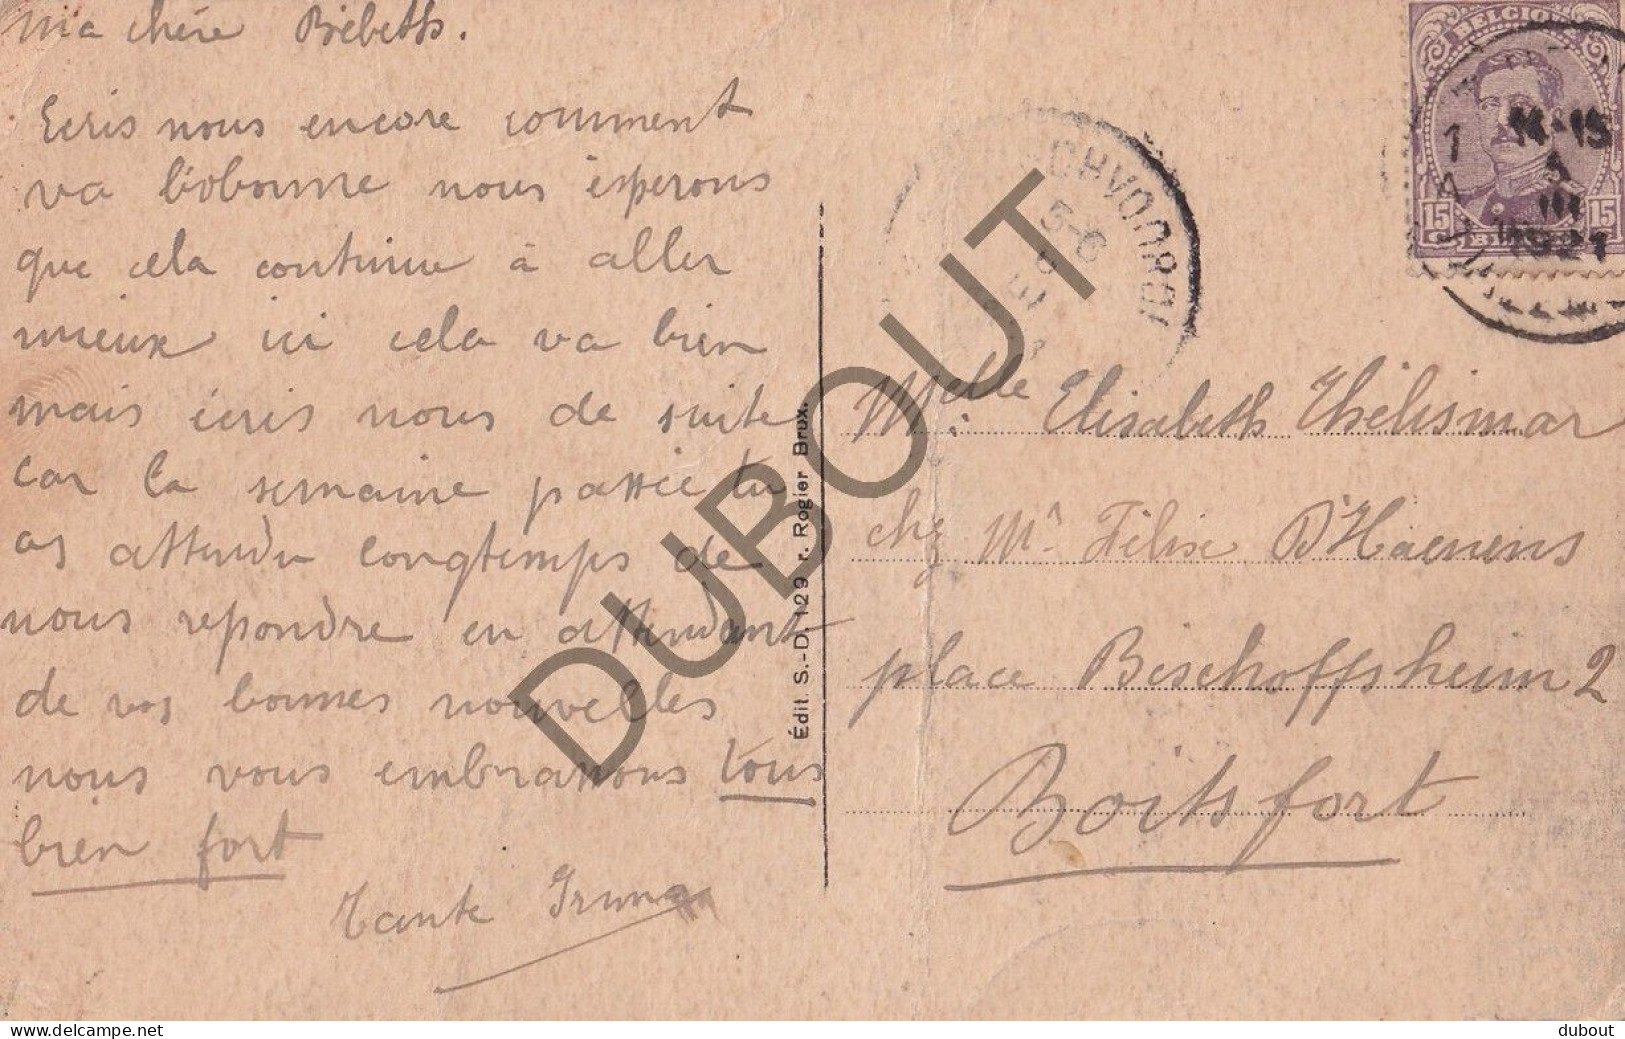 Ma chére Bébeth.
Ecris nous encore comment
va nous ésperons
que cela continue à aller
mieux ici cela va bien
mais écris nous de suite
car la semaine passée tu
as attendu longtemps de
nous repondre en attendant
de vos bonnes nouvelles
nous vous embrassons tous
bien fort
Tante Irma
Édit. S.-D. 129 r. Rogier Brux.
CHVOORDE
5-6
BELGIQUE
14-15
III
1921
15 15
Melle: Elisabeth Thélismar
chez Mr Félix D'Haenens
place Bischoffsheim 2
Boitsfort
DUBOUT
delcampe.net
dubout